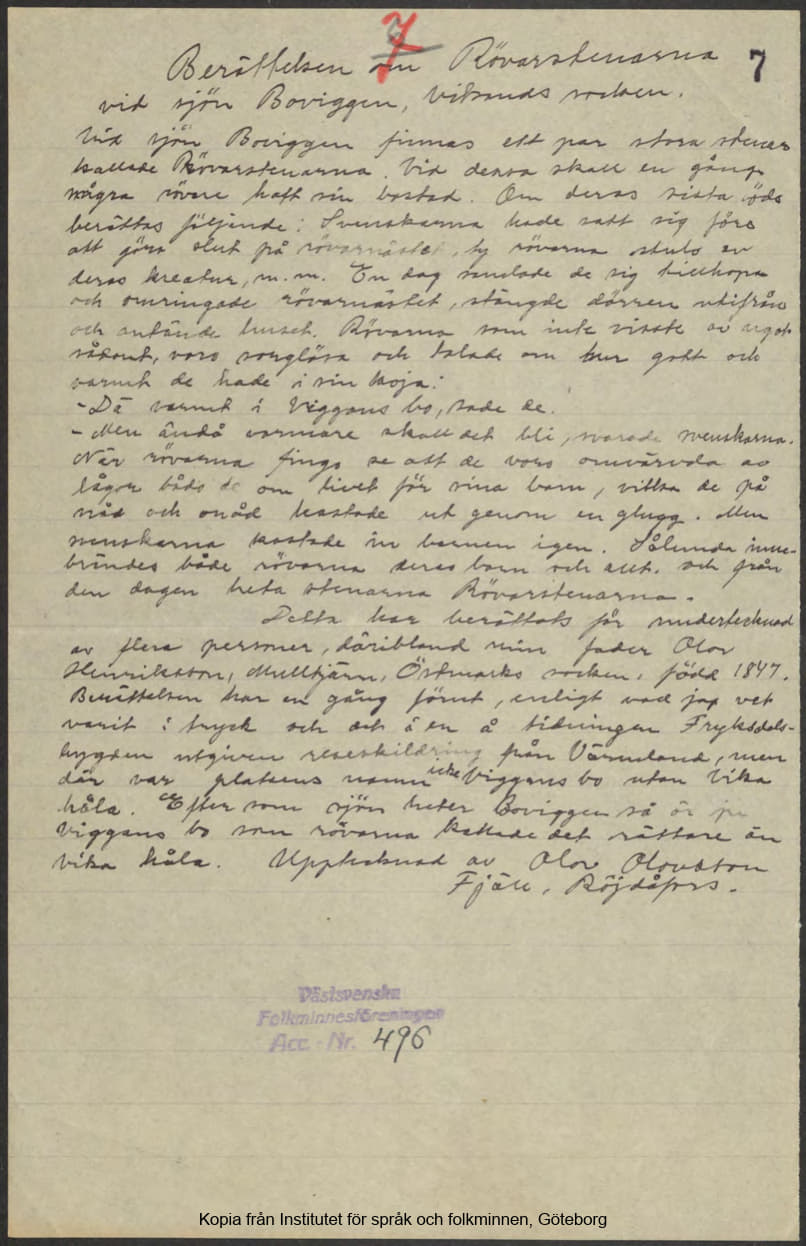 7
7
Berättelsen om Rövarstenarna
vid sjön Boviggen, Vitsands socken.
Vid sjön Boviggen finnas ett par stora stenar
kallade Rövarstenarna. Vid dessa skall en gång
några rövare haft sin bostad. Om deras sista öde
berättas följande: Svenskarna hade satt sig före
att göra slut på rövarnästet, ty rövarna stulo av
deras kreatur, m.m. En dag samlade de sig tillhopa
och omringade rövarnästet, stängde dörren utifrån
och antände huset. Rövarna som inte visste av något
sådant, voro sorglösa och talade om hur gott och
varmt de hade i sin koja:
- Dä varmt i Viggans bo, sade de.
- Men ändå varmare skall det bli, svarade svenskarna.
När rövarna fingo se att de voro omvärvda av
lågor både de om livet för sina barn, vilka de på
nåd och onåd kastade ut genom en glugg. Men
svenskarna kastade in barnen igen. Sålunda inne-
brändes både rövarna deras barn och allt. och från
den dagen heta stenarna Rövarstenarna.
Detta har berättats för undertecknad
av flera personer, däribland min fader Olov
Henriksson, Mulltjärn, Östmarks socken, född 1847.
Berättelsen har en gång förut, enligt vad jag vet
varit i tryck och det i en å tidningen Fryksdals-
bygden utgiven reseskildring från Värmland, men
där var platsens namn icke Viggans bo utan Vika
håla. Efter som sjön heter Boviggen så är ju
Viggans bo som rövarna kallade det rättare än
Vika håla. Upptecknad av Olov Olovsson
Fjäll, Röjdåfors.
Västsvenska
Folkminnesföreningen
Acc. Nr. 496
Kopia från Institutet för språk och folkminnen, Göteborg